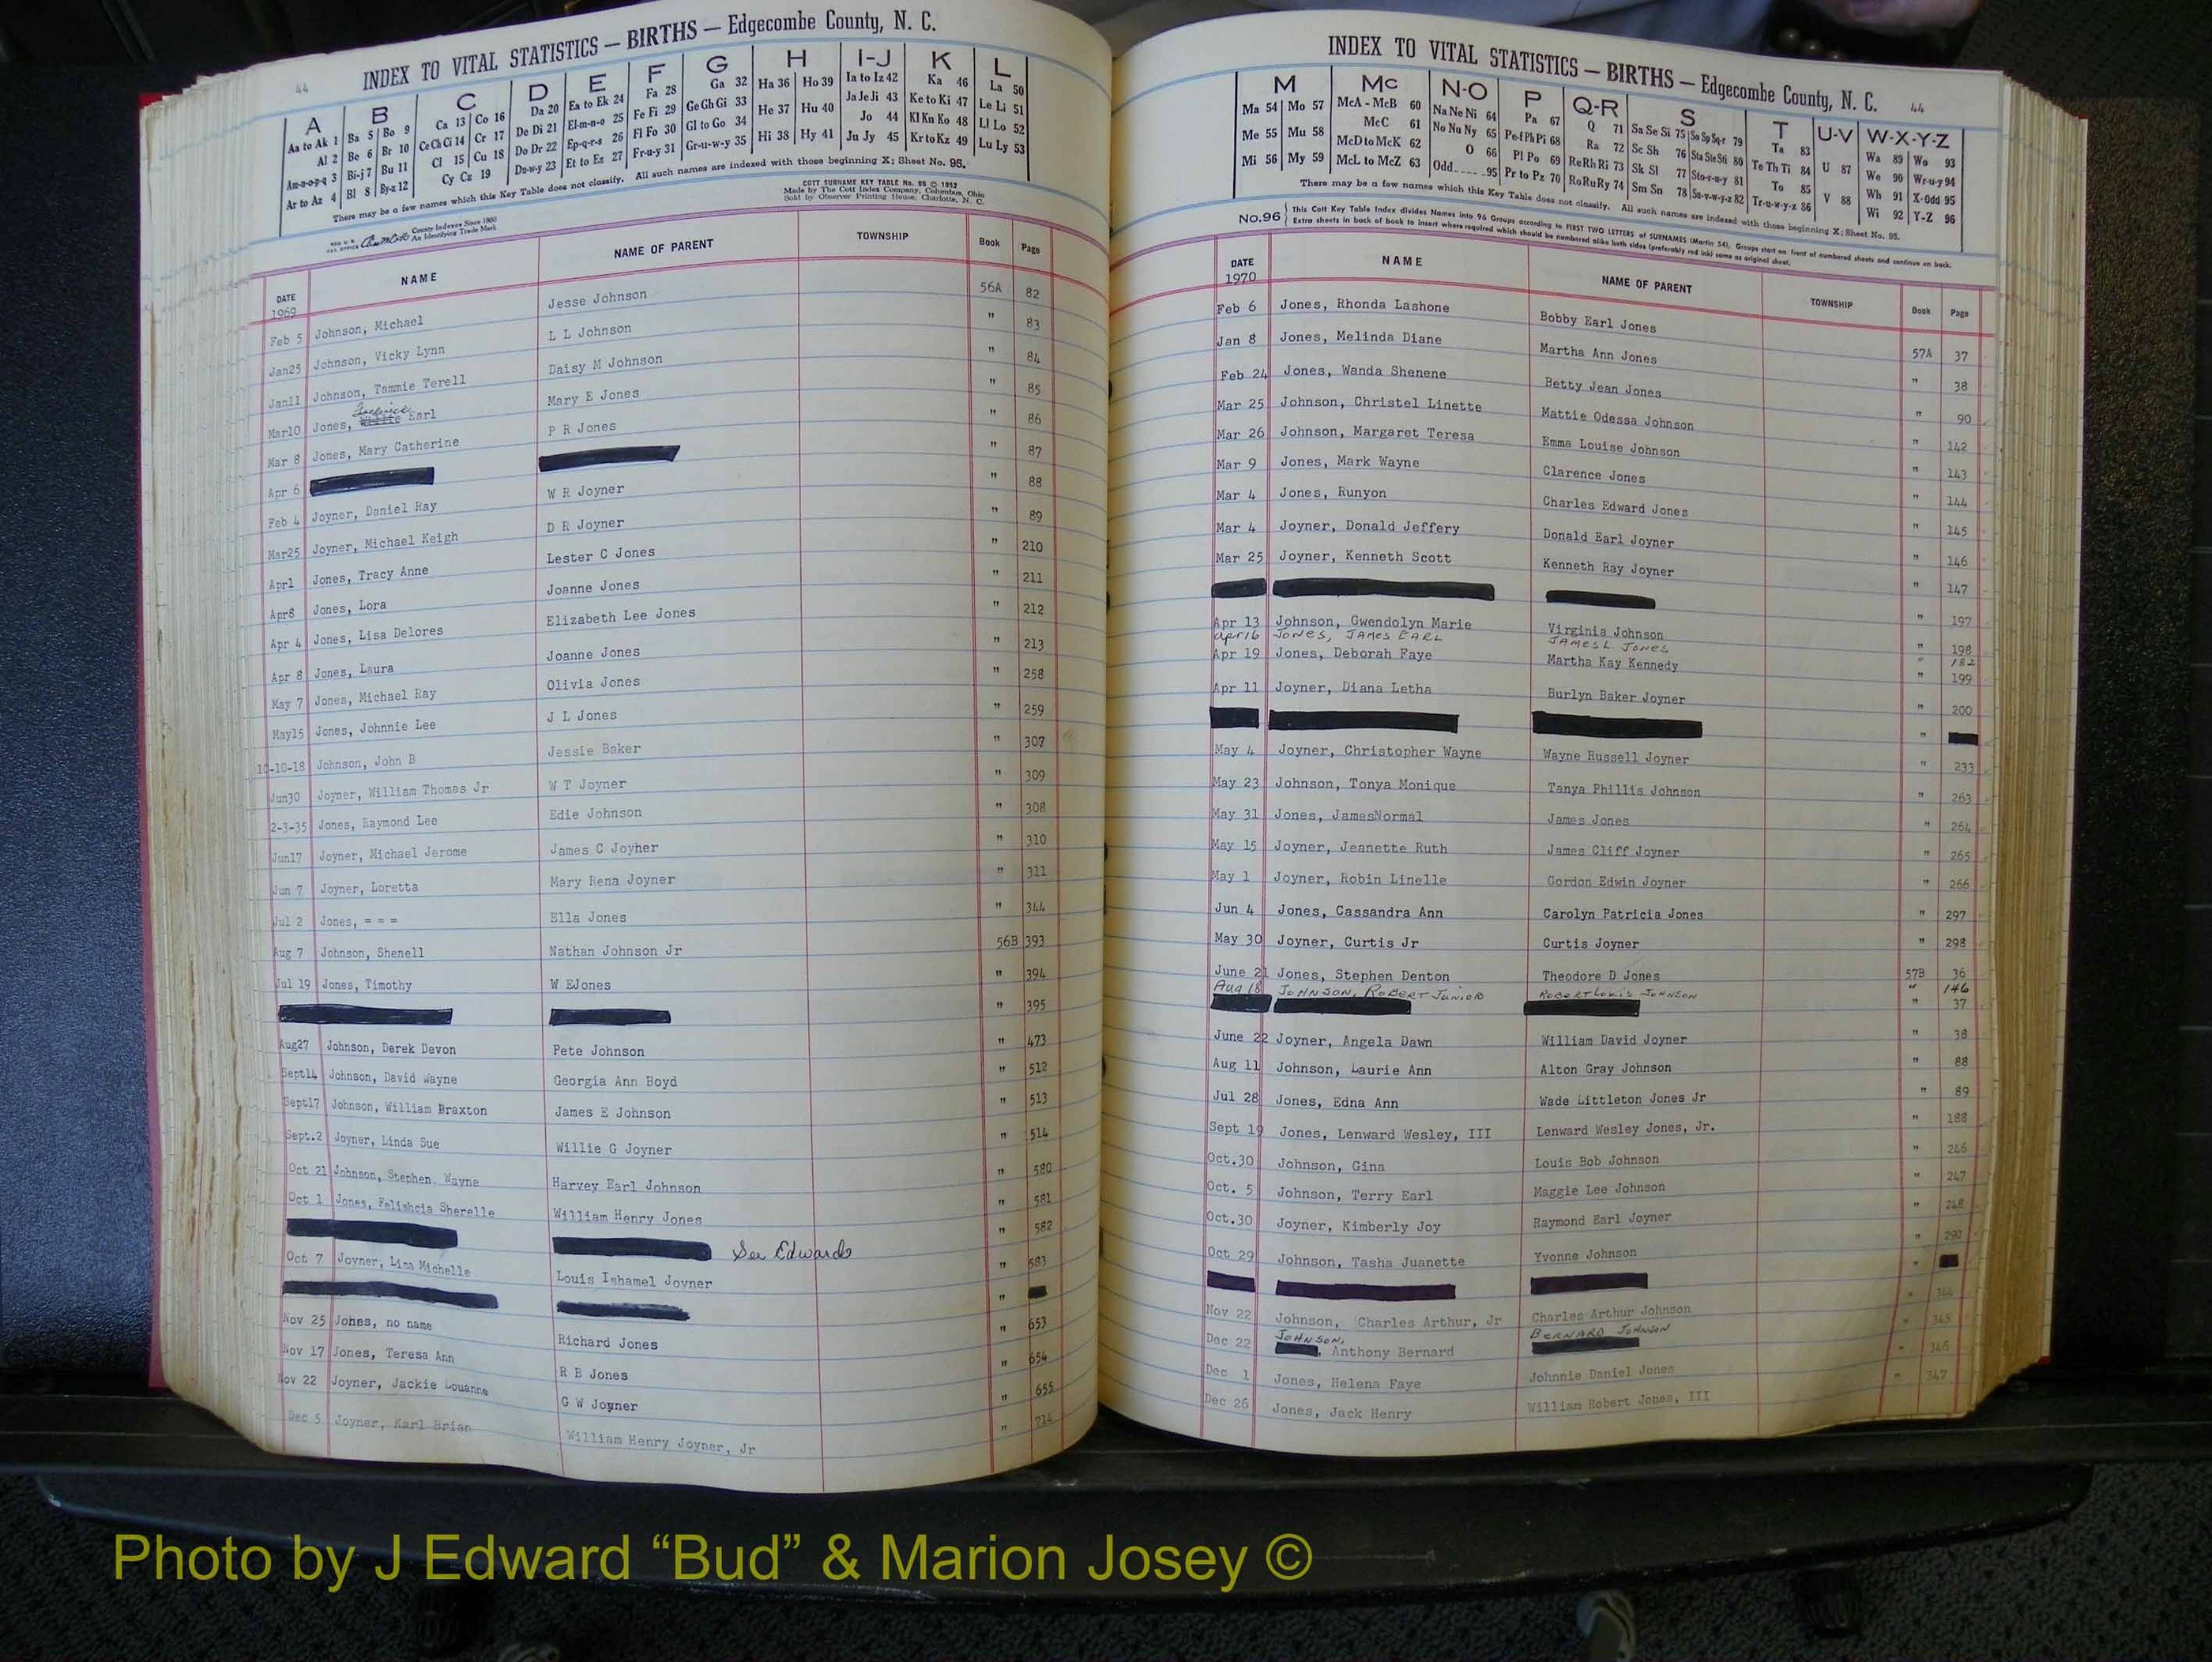 44
INDEX TO VITAL STATISTICS — BIRTHS — Edgecombe County, N. C.
A B C D E F G H I-J K L
Aa to Ak 1 Ba 5 Bo 9 Ca 13 Co 16 Da 20 Ea to Ek 24 Fa 28 Ga 32 Ha 36 Ho 39 Ia to Iz 42 Ka 46 La 50
Al 2 Be 6 Br 10 Ce Ch Ci 14 Cr 17 De Di 21 El-m-n-o 25 Fe Fi 29 Ge Gh Gi 33 He 37 Hu 40 Ja Je Ji 43 Ke to Ki 47 Le Li 51
Am-n-o-p-q 3 Bi-j 7 Bu 11 Cl 15 Cu 18 Do Dr 22 Ep-q-r-s 26 Fl Fo 30 Gl to Go 34 Hi 38 Hy 41 Jo 44 Kl Kn Ko 48 Ll Lo 52
Ar to Az 4 Bl 8 By-z 12 Cy Cz 19 Du-w-y 23 Et to Ez 27 Fr-u-y 31 Gr-u-w-y 35 Ju Jy 45 Kr to Kz 49 Lu Ly 53
There may be a few names which this Key Table does not classify. All such names are indexed with those beginning X; Sheet No. 95.
COTT SURNAME KEY TABLE No. 96 © 1952
Made by The Cott Index Company, Columbus, Ohio
Sold by Observer Printing House, Charlotte, N. C.
County Indexes Since 1888
An Identifying Trade Mark
DATE NAME NAME OF PARENT TOWNSHIP Book Page
1969
Feb 5 Johnson, Michael Jesse Johnson 56A 82
Jan25 Johnson, Vicky Lynn L L Johnson " 83
Jan11 Johnson, Tammie Terell Daisy M Johnson " 84
Mar10 Jones, Willie Earl Mary E Jones " 85
Mar 8 Jones, Mary Catherine P R Jones " 86
Apr 6 " 87
Feb 4 Joyner, Daniel Ray W R Joyner " 88
Mar25 Joyner, Michael Keigh D R Joyner " 89
Apr1 Jones, Tracy Anne Lester C Jones " 210
Apr8 Jones, Lora Joanne Jones " 211
Apr 4 Jones, Lisa Delores Elizabeth Lee Jones " 212
Apr 8 Jones, Laura Joanne Jones " 213
May 7 Jones, Michael Ray Olivia Jones " 258
May15 Jones, Johnnie Lee J L Jones " 259
10-10-18 Johnson, John B Jessie Baker " 307
Jun30 Joyner, William Thomas Jr W T Joyner " 309
2-3-35 Jones, Raymond Lee Edie Johnson " 308
Jun17 Joyner, Michael Jerome James C Joyner " 310
Jun 7 Joyner, Loretta Mary Rena Joyner " 311
Jul 2 Jones, = = = Ella Jones " 344
Aug 7 Johnson, Shenell Nathan Johnson Jr 56B 393
Jul 19 Jones, Timothy W EJones " 394
" 395
Aug27 Johnson, Derek Devon Pete Johnson " 473
Sept14 Johnson, David Wayne Georgia Ann Boyd " 512
Sept17 Johnson, William Braxton James E Johnson " 513
Sept.2 Joyner, Linda Sue Willie G Joyner " 514
Oct 21 Johnson, Stephen Wayne Harvey Earl Johnson " 580
Oct 1 Jones, Felishcia Sherelle William Henry Jones " 581
See Edwards " 582
Oct 7 Joyner, Lisa Michelle Louis Ishamel Joyner " 583
"
Nov 25 Jones, no name Richard Jones " 653
Nov 17 Jones, Teresa Ann R B Jones " 654
Nov 22 Joyner, Jackie Louanne G W Joyner " 655
Dec 5 Joyner, Karl Brian William Henry Joyner, Jr " 714
INDEX TO VITAL STATISTICS — BIRTHS — Edgecombe County, N. C. 44
M Mc N-O P Q-R S T U-V W-X-Y-Z
Ma 54 Mo 57 McA - McB 60 Na Ne Ni 64 Pa 67 Q 71 Sa Se Si 75 So Sp Sq-r 79 Ta 83 U 87 Wa 89 Wo 93
Me 55 Mu 58 McC 61 No Nu Ny 65 Pe-f Ph Pi 68 Ra 72 Sc Sh 76 Sta Ste Sti 80 Te Th Ti 84 V 88 We 90 Wr-u-y 94
Mi 56 My 59 McD to McK 62 O 66 Pl Po 69 Re Rh Ri 73 Sk Sl 77 Sto-r-u-y 81 To 85 Wh 91 X-Odd 95
McL to McZ 63 Odd 95 Pr to Pz 70 Ro Ru Ry 74 Sm Sn 78 Su-v-w-y-z 82 Tr-u-w-y-z 86 Wi 92 Y-Z 96
There may be a few names which this Key Table does not classify. All such names are indexed with those beginning X; Sheet No. 95.
No.96 This Cott Key Table Index divides Names into 96 Groups according to FIRST TWO LETTERS of SURNAMES (Martin 54). Groups start on front of numbered sheets and continue on back.
Extra sheets in back of book to insert where required which should be numbered alike both sides (preferably red ink) same as original sheet.
DATE NAME NAME OF PARENT TOWNSHIP Book Page
1970
Feb 6 Jones, Rhonda Lashone Bobby Earl Jones 57A 37
Jan 8 Jones, Melinda Diane Martha Ann Jones " 38
Feb 24 Jones, Wanda Shenene Betty Jean Jones " 90
Mar 25 Johnson, Christel Linette Mattie Odessa Johnson " 142
Mar 26 Johnson, Margaret Teresa Emma Louise Johnson " 143
Mar 9 Jones, Mark Wayne Clarence Jones " 144
Mar 4 Jones, Runyon Charles Edward Jones " 145
Mar 4 Joyner, Donald Jeffery Donald Earl Joyner " 146
Mar 25 Joyner, Kenneth Scott Kenneth Ray Joyner " 147
" 197
Apr 13 Johnson, Gwendolyn Marie Virginia Johnson " 198
apr 16 JONES, JAMES EARL JAMES L JONES " 182
Apr 19 Jones, Deborah Faye Martha Kay Kennedy " 199
Apr 11 Joyner, Diana Letha Burlyn Baker Joyner " 200
"
May 4 Joyner, Christopher Wayne Wayne Russell Joyner " 233
May 23 Johnson, Tonya Monique Tanya Phillis Johnson " 263
May 31 Jones, JamesNormal James Jones " 264
May 15 Joyner, Jeanette Ruth James Cliff Joyner " 265
May 1 Joyner, Robin Linelle Gordon Edwin Joyner " 266
Jun 4 Jones, Cassandra Ann Carolyn Patricia Jones " 297
May 30 Joyner, Curtis Jr Curtis Joyner " 298
June 21 Jones, Stephen Denton Theodore D Jones 57B 36
Aug 18 JOHNSON, ROBERT JUNIOR ROBERT LOUIS JOHNSON " 146
" 37
June 22 Joyner, Angela Dawn William David Joyner " 38
Aug 11 Johnson, Laurie Ann Alton Gray Johnson " 88
Jul 28 Jones, Edna Ann Wade Littleton Jones Jr " 89
Sept 19 Jones, Lenward Wesley, III Lenward Wesley Jones, Jr. " 188
Oct.30 Johnson, Gina Louis Bob Johnson " 246
Oct. 5 Johnson, Terry Earl Maggie Lee Johnson " 247
Oct.30 Joyner, Kimberly Joy Raymond Earl Joyner " 248
Oct 29 Johnson, Tasha Juanette Yvonne Johnson " 290
"
Nov 22 Johnson, Charles Arthur, Jr Charles Arthur Johnson " 344
Dec 22 JOHNSON, Anthony Bernard BERNARD JOHNSON " 345
Dec 1 Jones, Helena Faye Johnnie Daniel Jones " 346
Dec 26 Jones, Jack Henry William Robert Jones, III " 347
Photo by J Edward “Bud” & Marion Josey ©